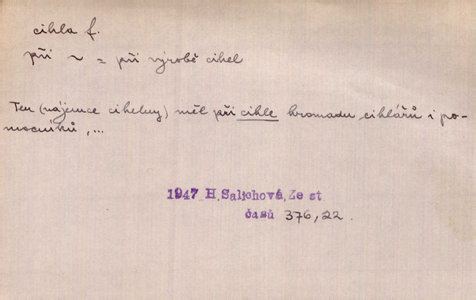 cihla f.
při ~ = při výrobě cihel
Ten (nájemce cihelny) měl při cihle hromadu cihlářů i po-
mocníků, ...
1947 H.Saljchová,Ze st
časů 376,22.